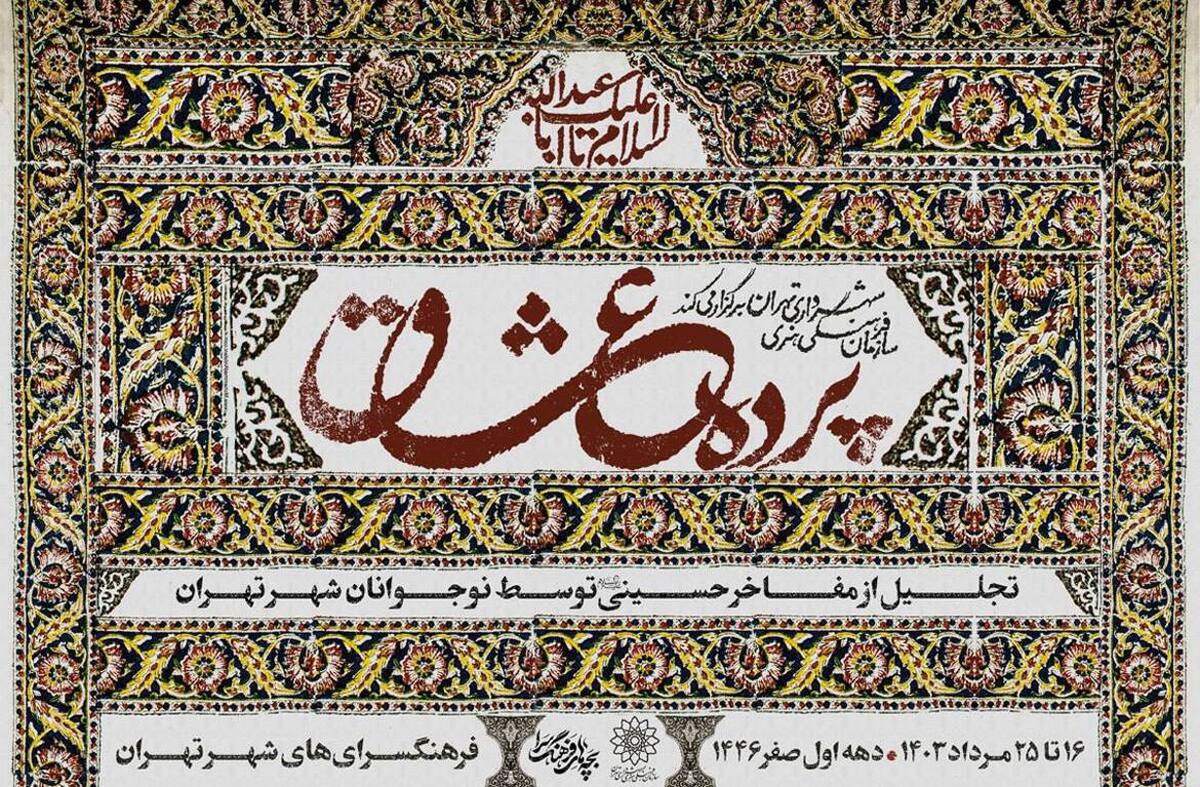 السلام علیک یا اباعبدالله
سازمان فرهنگی هنری
شهرداری تهران برگزار می کند
پرده عشاق
تجلیل از مفاخر حسینی توسط نوجوانان شهر تهران
۱۶ تا ۲۵ مرداد ۱۴۰۳ • دهه اول صفر ۱۴۴۶
بچه های فرهنگسرا
فرهنگسرای های شهر تهران